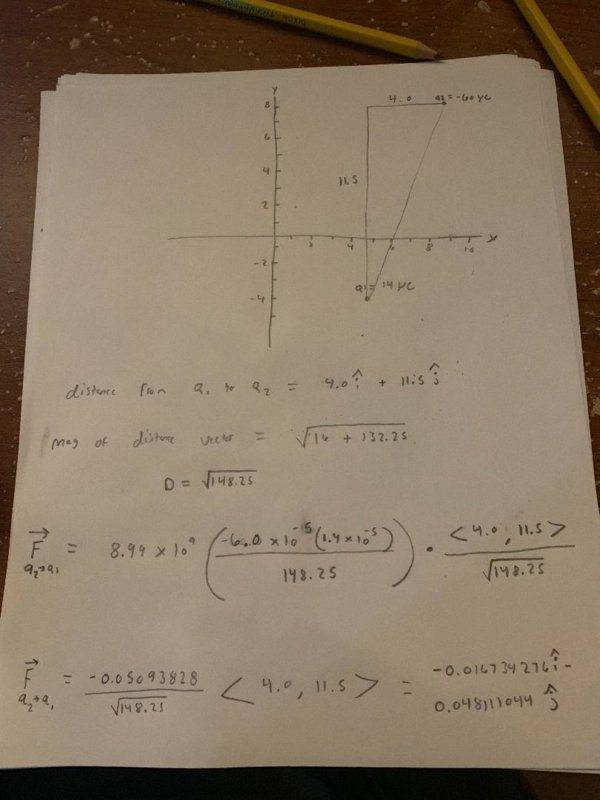 y
8
4.0 q2 = -60 μC
6
4
11.5
2
2 4 6 8 10 x
-2
q1 = 14 μC
-4
distance from q₁ to q₂ = 4.0 î + 11.5 ĵ
mag of distance vector = √(16 + 132.25)
D = √148.25
F⃗ q₂→q₁ = 8.99 × 10⁹ ( -6.0 × 10⁻⁵ (1.4 × 10⁻⁵) / 148.25 ) • < 4.0 , 11.5 > / √148.25
F⃗ q₂→q₁ = -0.05093828 / √148.25 < 4.0 , 11.5 > = -0.016734276 î -
0.048111044 ĵ